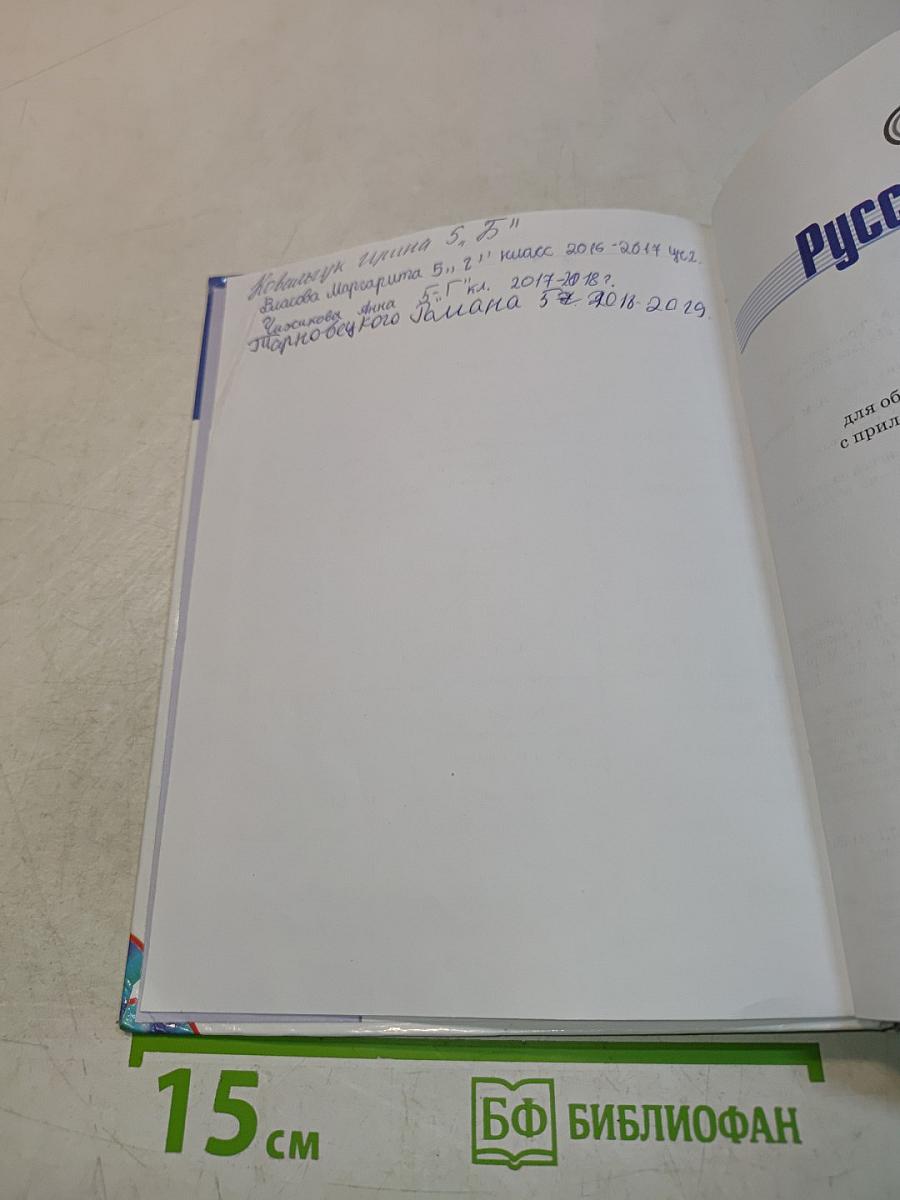 Ковальчук Ирина 5 „Б"
Власова Маргарита 5 „г" класс 2016-2017 уч.г.
Чижикова Анна 5-„Г" кл. 2017-2018 г.
Тарновецкого Романа 5 2018-2019.
Русс
для об
с прил
15 см
БФ БИБЛИОФАН